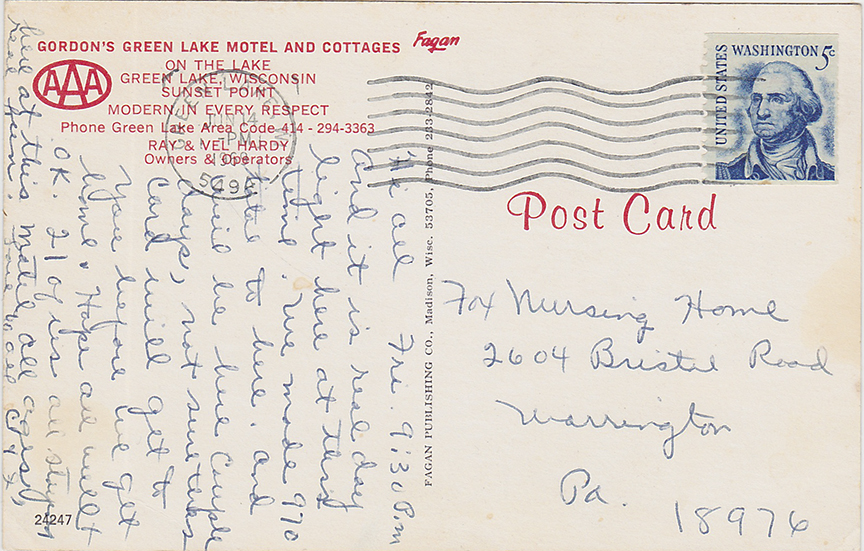 GORDON'S GREEN LAKE MOTEL AND COTTAGES
Fagan
AAA
ON THE LAKE
GREEN LAKE, WISCONSIN
SUNSET POINT
MODERN IN EVERY RESPECT
Phone Green Lake Area Code 414 - 294-3363
RAY & VEL HARDY
Owners & Operators
JUN 14
PM
5494
UNITED STATES
WASHINGTON 5c
Post Card
FAGAN PUBLISHING CO., Madison, Wisc. 53705, Phone 233-2842
Hi all Fri. 9:30 P.m
and it is real day
light here at this
time. We made 970
total to here. and
will be here couple
days, not sure this
card will get to
you before we get
home. Hope all well &
OK. 21 of us all staying
here at this motel all ages
real fun. Love to all
Fox Nursing Home
2604 Bristol Road
Warrington
Pa.
18976
24247